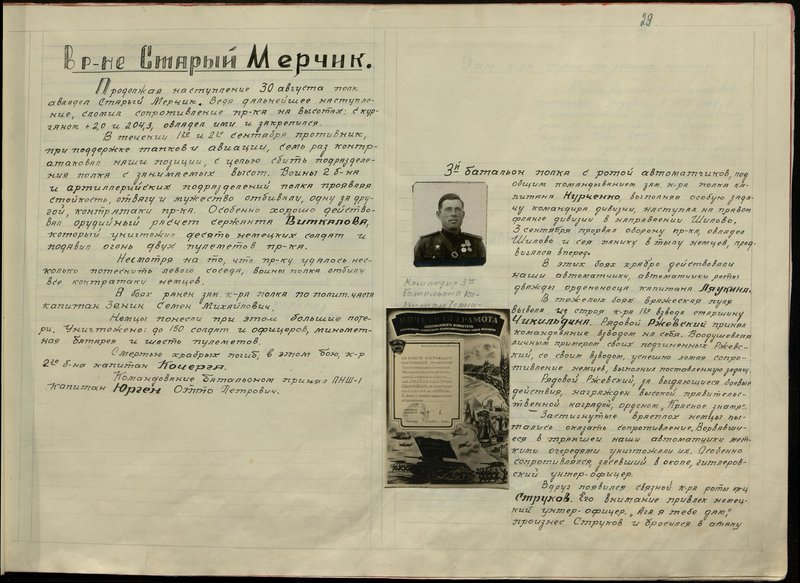 В р-не Старый Мерчик.
Продолжая наступление 30 августа полк
овладел Старый Мерчик. Ведя дальнейшее наступле-
ние, сломил сопротивление пр-ка на высотах: с кур-
ганом +2,0 и 204,3, овладел ими и закрепился.
В течении 1го и 2го сентября противник,
при поддержке танков и авиации, семь раз контр-
атаковал наши позиции, с целью сбить подразделе-
ния полка с занимаемых высот. Воины 2 б-на
и артиллерийских подразделений полка проявляя
стойкость, отвагу и мужество отбивали, одну за дру-
гой, контратаки пр-ка. Особенно хорошо действо-
вал орудийный расчет сержанта Виткалова,
который уничтожил десять немецких солдат и
подавил огонь двух пулеметов пр-ка.
Несмотря на то, что пр-ку удалось нес-
колько потеснить левого соседа, воины полка отбили
все контратаки немцев.
В боях ранен зам. к-ра полка по полит. части
капитан Зенин Семен Михайлович.
Немцы понесли при этом большие поте-
ри. Уничтожено: до 150 солдат и офицеров, миномет-
ная батарея и шесть пулеметов.
Смертью храбрых погиб, в этом бою, к-р
2го б-на капитан Кочергя.
Командование батальоном принял ПНШ-1
капитан Юрген Отто Петрович.
29
3й батальон полка с ротой автоматчиков, под
общим командыванием зам к-ра полка ка-
питана Курченко выполняя особую зада-
чу командира дивизии, наступал на правом
фланге дивизии в направлении Шилово,
3 сентября прорвал оборону пр-ка, овладел
Шилово и сея панику в тылу немцев, прод-
вигался вперед.
В этих боях храбро действовали
наши автоматчики, автоматчики роты
дважды орденоносца капитана Ляукина.
В тяжелых боях вражеская пуля
вывела из строя к-ра 1го взвода старшину
Чикильдина. Рядовой Ржевский принял
командование взводом на себя. Воодушевляя
личным примером своих подчиненных Ржевс-
кий, со своим взводом, успешно ломая сопро-
тивление немцев, выполнил поставленную задачу.
Рядовой Ржевский, за выдающиеся боевые
действия, награжден высокой правительс-
твенной наградой, орденом „Красное знамя“.
Застигнутые врасплох немцы пы-
тались оказать сопротивление. Ворвавши-
еся в траншеи наши автоматчики мет-
кими очередями уничтожали их. Особенно
сопротивлялся, засевший в окопе, гитлеров-
ский унтер-офицер.
Вдруг появился связной к-ра роты кр-ц
Струков. Его внимание привлек немец-
кий унтер-офицер. „Ага я тебе дам,“
произнес Струков и бросился в атаку
Командир 3го
батальона ка-
питан
ПОЧЕТНАЯ ГРАМОТА
ЦЕНТРАЛЬНОГО КОМИТЕТА